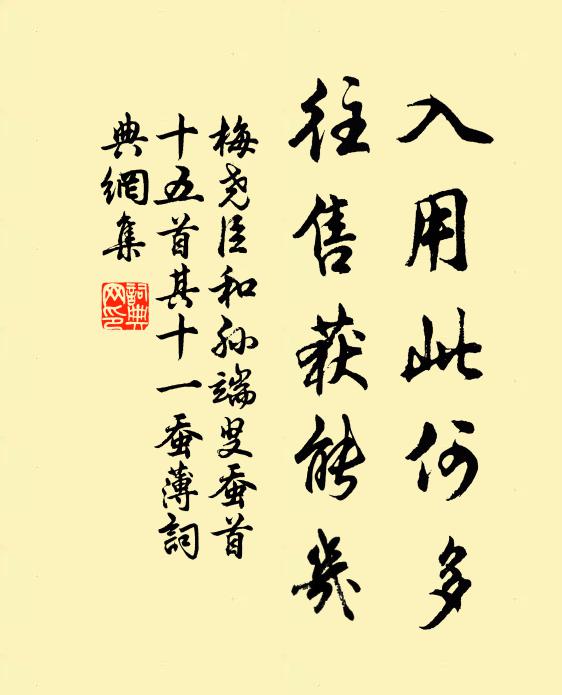 入用此何多
往售获能几
梅尧臣和孙端叟蚕首
十五首其十一蚕薄詞
典網集
詞典網印